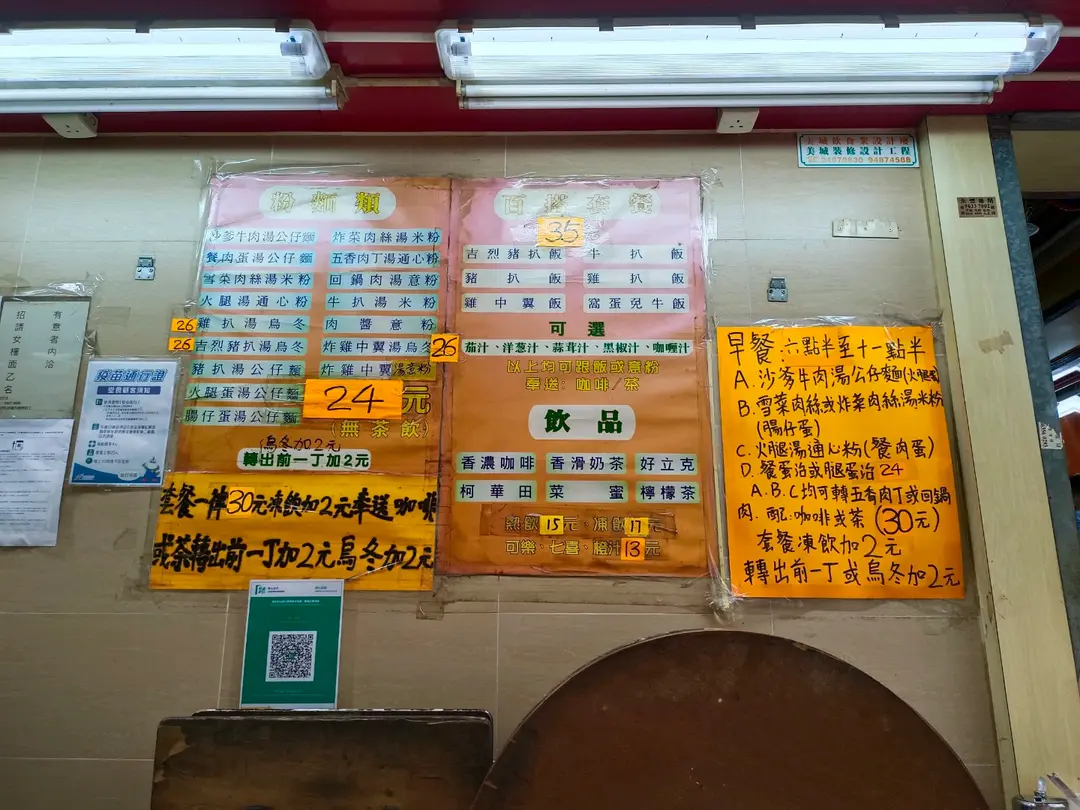 美城飲食業設計樓
美城裝修設計工程
94879830 94874588
有意者內洽
招請女樓面乙名
疫苗通行證
粉麵類
沙爹牛肉湯公仔麵 炸菜肉絲湯米粉
餐肉蛋湯公仔麵 五香肉丁湯通心粉
雪菜肉絲湯米粉 回鍋肉湯意粉
火腿湯通心粉 牛扒湯米粉
26 雞扒湯烏冬 肉醬意粉
26 吉烈豬扒湯烏冬 炸雞中翼湯烏冬 26
豬扒湯公仔麵 炸雞中翼湯意粉
火腿蛋湯公仔麵
腸仔蛋湯公仔麵
24元
(無茶飲)
烏冬加2元
轉出前一丁加2元
套餐一律30元凍飲加2元奉送咖啡
或茶轉出前一丁加2元烏冬加2元
百搭套餐
35
吉烈豬扒飯 牛扒飯
豬扒飯 雞扒飯
雞中翼飯 窩蛋免牛飯
可選
茄汁、洋葱汁、蒜茸汁、黑椒汁、咖喱汁
以上均可跟飯或意粉
奉送：咖啡/茶
飲品
香濃咖啡 香滑奶茶 好立克
柯華田 菜蜜 檸檬茶
熱飲15元、凍飲17元
可樂、七喜、橙汁13元
早餐：六點半至十一點半
A. 沙爹牛肉湯公仔麵(火腿蛋)
B. 雪菜肉絲或炸菜肉絲湯米粉
(腸仔蛋)
C. 火腿湯通心粉(餐肉蛋)
D. 餐蛋治或腿蛋治24
A.B.C均可轉五香肉丁或回鍋
肉. 配:咖啡或茶(30元)
套餐凍飲加2元
轉出前一丁或烏冬加2元